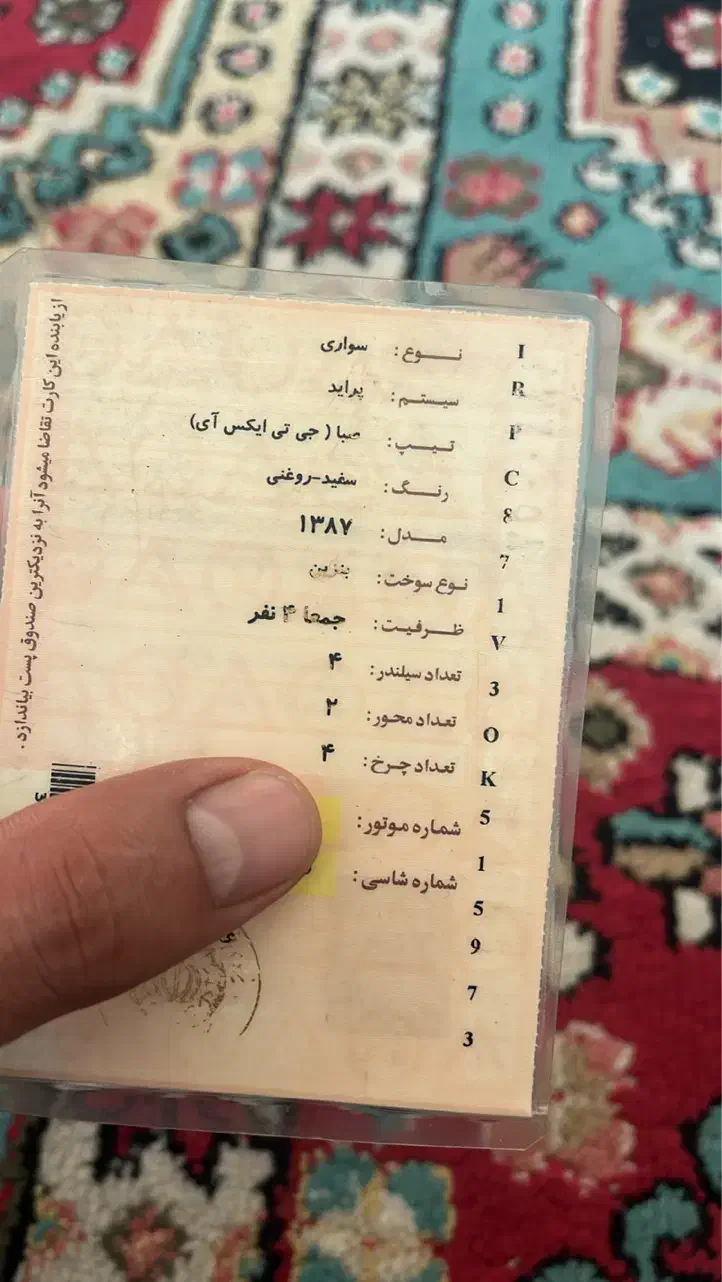 نوع: سواری
سیستم: پراید
تیپ: صبا (جی تی ایکس آی)
رنگ: سفید-روغنی
مدل: ۱۳۸۷
نوع سوخت: بنزین
ظرفیت: جمعا ۴ نفر
تعداد سیلندر: ۴
تعداد محور: ۲
تعداد چرخ: ۴
شماره موتور:
شماره شاسی:
I
R
P
C
8
7
1
V
3
O
K
5
1
5
9
7
3
از یابنده این کارت تقاضا میشود آنرا به نزدیکترین صندوق پست بیاندازد.
3